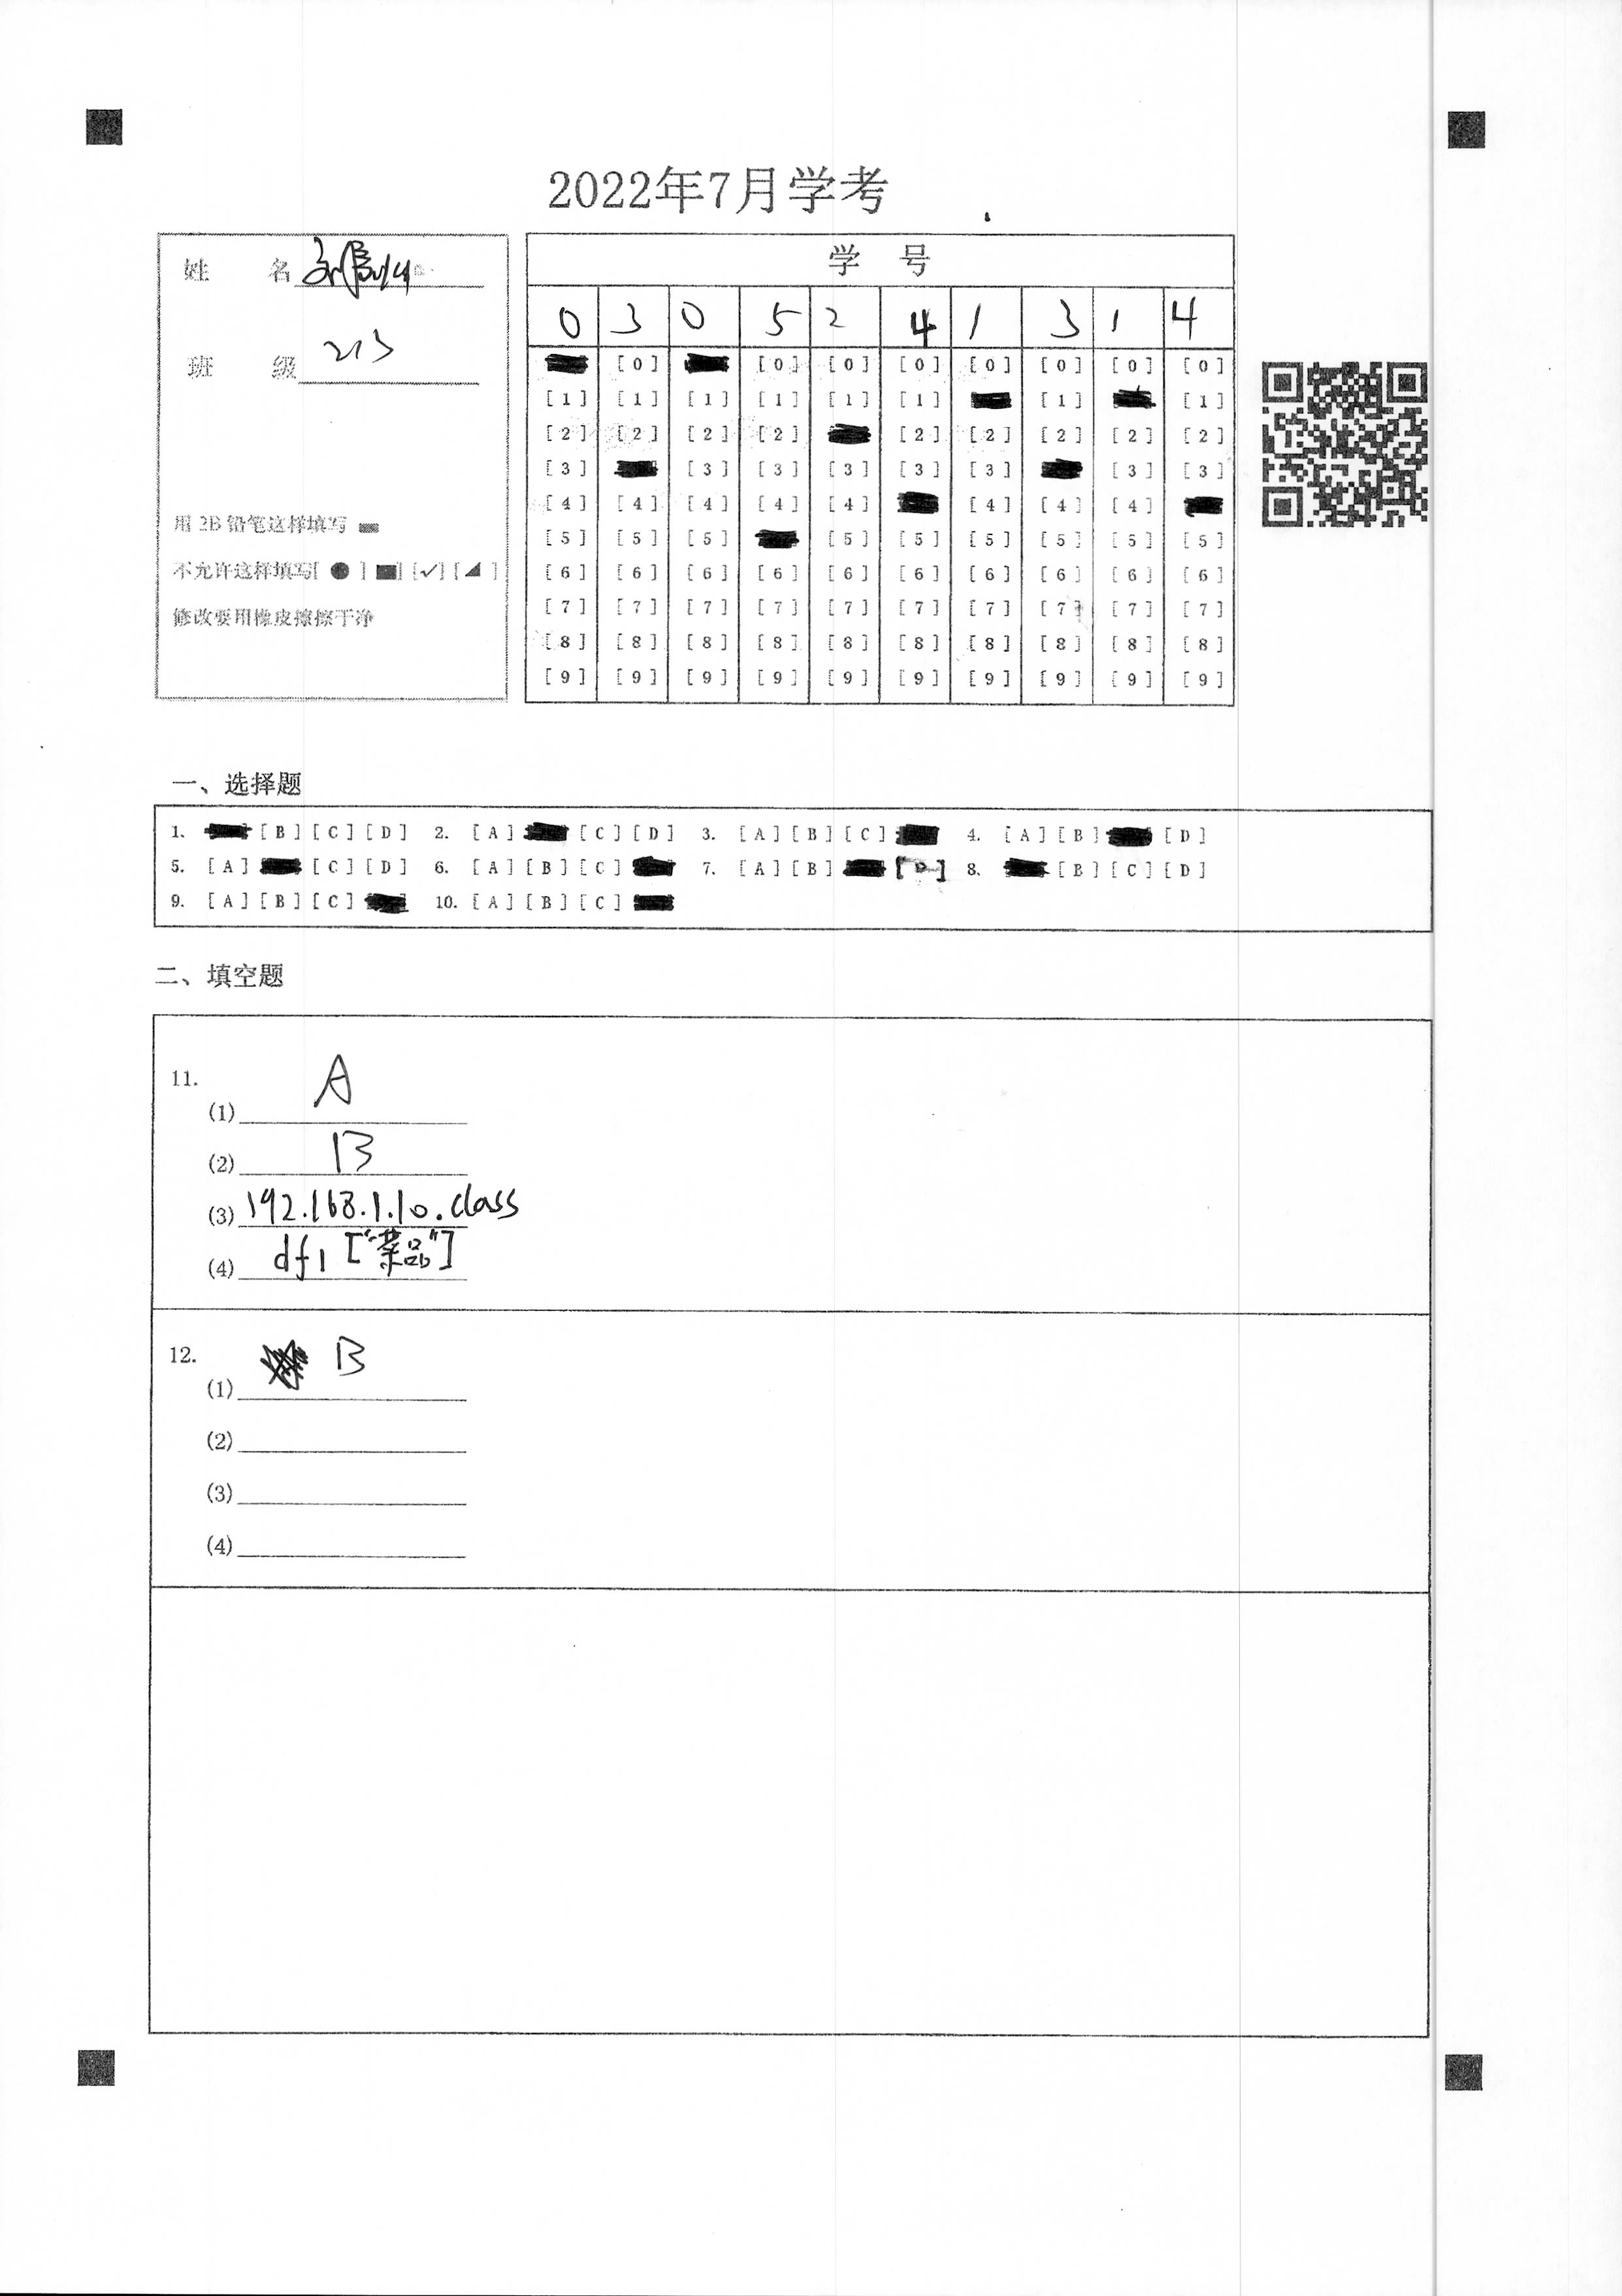 2022年7月学考
姓 名
班 级 213
用 2B 铅笔这样填写
不允许这样填写[ ● ] [■] [✓] [◢ ]
修改要用橡皮擦擦干净
学 号
0 3 0 5 2 4 1 3 1 4
[0] [0] [0] [0] [0] [0] [0] [0]
[1] [1] [1] [1] [1] [1] [1] [1]
[2] [2] [2] [2] [2] [2] [2] [2] [2]
[3] [3] [3] [3] [3] [3] [3] [3]
[4] [4] [4] [4] [4] [4] [4] [4]
[5] [5] [5] [5] [5] [5] [5] [5] [5]
[6] [6] [6] [6] [6] [6] [6] [6] [6] [6]
[7] [7] [7] [7] [7] [7] [7] [7] [7] [7]
[8] [8] [8] [8] [8] [8] [8] [8] [8] [8]
[9] [9] [9] [9] [9] [9] [9] [9] [9] [9]
一、选择题
1. [B] [C] [D] 2. [A] [C] [D] 3. [A] [B] [C] 4. [A] [B] [D]
5. [A] [C] [D] 6. [A] [B] [C] 7. [A] [B] [D] 8. [B] [C] [D]
9. [A] [B] [C] 10. [A] [B] [C]
二、填空题
11.
(1) A
(2) B
(3) 192.168.1.10.class
(4) df1["菜品"]
12.
(1) B
(2)
(3)
(4)